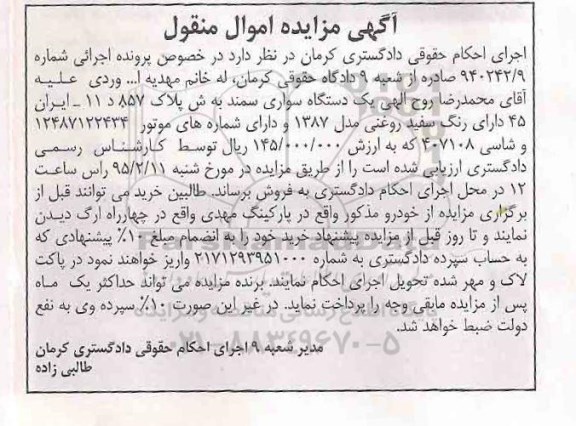 آگهی مزایده اموال منقول
اجرای احکام حقوقی دادگستری کرمان در نظر دارد در خصوص پرونده اجرائی شماره
۹۴۰۲۴۲/۹ صادره از شعبه ۹ دادگاه حقوقی کرمان، له خانم مهدیه ا... وردی علیه
آقای محمدرضا روح الهی یک دستگاه سواری سمند به ش پلاک ۸۵۷ د ۱۱ ـ ایران
۴۵ دارای رنگ سفید روغنی مدل ۱۳۸۷ و دارای شماره های موتور ۱۲۴۸۷۱۲۲۴۳۴
و شاسی ۴۰۷۱۰۸ که به ارزش ۱۴۵/۰۰۰/۰۰۰ ریال توسط کارشناس رسمی
دادگستری ارزیابی شده است را از طریق مزایده در مورخ شنبه ۹۵/۲/۱۱ راس ساعت
۱۲ در محل اجرای احکام دادگستری به فروش برساند. طالبین خرید می توانند قبل از
برگزاری مزایده از خودرو مذکور واقع در پارکینگ مهدی واقع در چهارراه ارگ دیدن
نمایند و تا روز قبل از مزایده پیشنهاد خرید خود را به انضمام مبلغ ۱۰٪ پیشنهادی که
به حساب سپرده دادگستری به شماره ۲۱۷۱۲۹۳۹۵۱۰۰۰ واریز خواهند نمود در پاکت
لاک و مهر شده تحویل اجرای احکام نمایند. برنده مزایده می تواند حداکثر یک ماه
پس از مزایده مابقی وجه را پرداخت نماید. در غیر این صورت ۱۰٪ سپرده وی به نفع
دولت ضبط خواهد شد.
۰۲۱-۸۸۳۴۹۶۷۰-۵
مدیر شعبه ۹ اجرای احکام حقوقی دادگستری کرمان
طالبی زاده